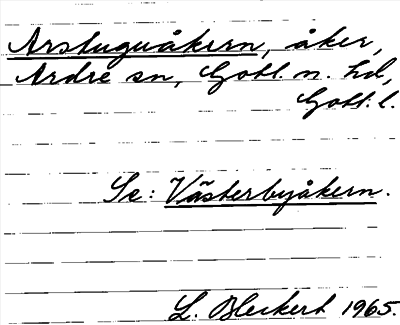 Arstuguåkern, åker,
Ardre sn, Gotl. n. hd,
Gotl. l.
Se: Västerbyåkern.
L. Bleckert 1965.